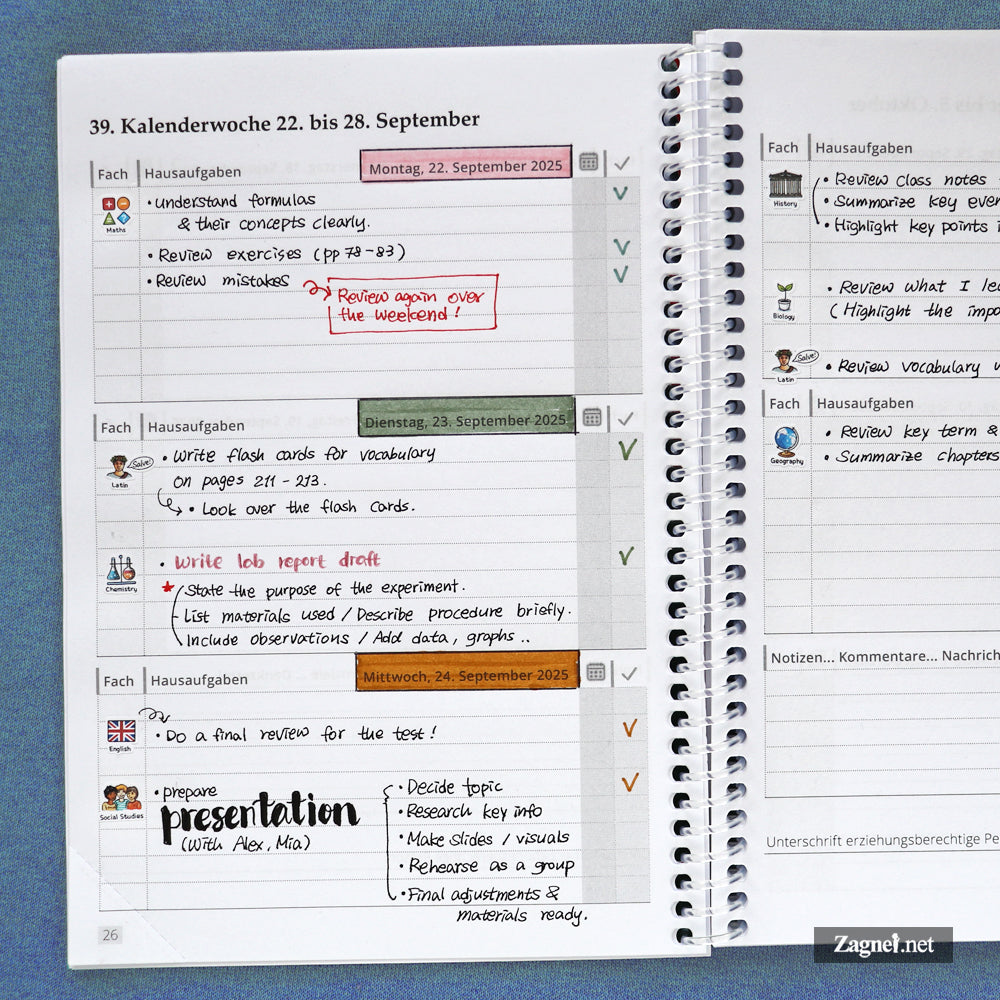 39. Kalenderwoche 22. bis 28. September
Fach
Hausaufgaben
Montag, 22. September 2025
Maths
• understand formulas
& their concepts clearly.
• Review exercises (pp 78-83)
• Review mistakes
Review again over
the weekend!
Fach
Hausaufgaben
Dienstag, 23. September 2025
Salve!
Latin
• Write flash cards for vocabulary
on pages 211 - 213.
• Look over the flash cards.
Chemistry
• Write lab report draft
State the purpose of the experiment.
List materials used / Describe procedure briefly.
Include observations / Add data, graphs ..
Fach
Hausaufgaben
Mittwoch, 24. September 2025
English
• Do a final review for the test!
Social Studies
• prepare
presentation
(With Alex, Mia)
• Decide topic
• Research key info
• Make slides / visuals
• Rehearse as a group
• Final adjustments &
materials ready.
26
Fach
Hausaufgaben
History
• Review class notes
• Summarize key
• Highlight key points
Biology
• Review what I
(Highlight the
Salve!
Latin
• Review vocabulary
Fach
Hausaufgaben
Geography
• Review key term &
• Summarize chapters
Notizen... Kommentare...
Unterschrift erziehungsberechtige
Zagnet.net